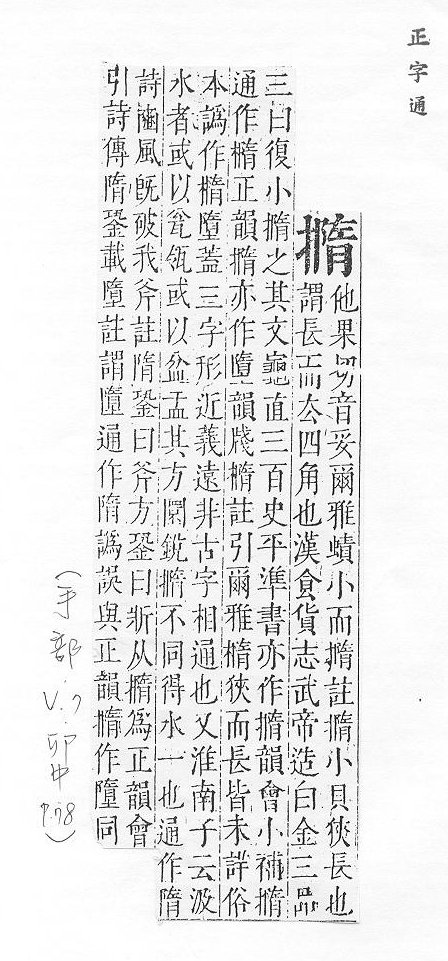 正字通
撱
他果切音妥爾雅蟦小而撱註撱小貝狹長也
謂長而厺四角也漢食貨志武帝造白金三品
三曰復小撱之其文龜直三百史平準書亦作撱韻會小補撱
通作橢正韻撱亦作墮韻牋橢註引爾雅橢狹而長皆未詳俗
本譌作橢墮蓋三字形近義遠非古字相通也又淮南子云汲
水者或以瓮瓴或以盆盂其方圜銳撱不同得水一也通作隋
詩豳風旣破我斧註隋銎曰斧方銎曰斨从撱為正韻會
引詩傳隋銎載墮註謂墮通作隋譌誤與正韻撱作墮同
(手部.V.7.卯中 P.78)